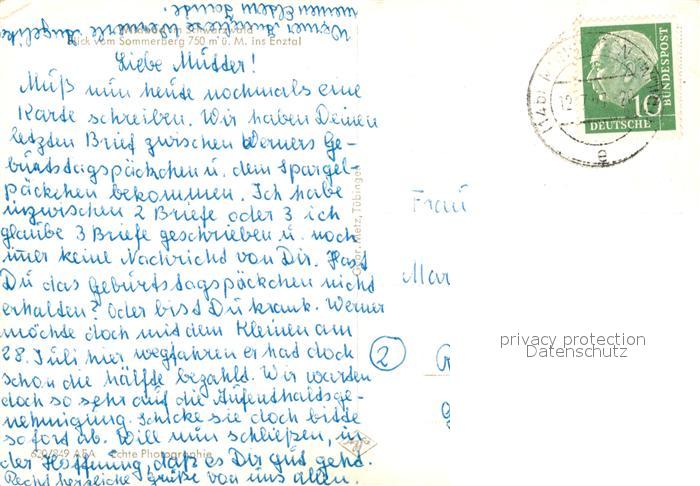 Wildbad im Schwarzwald
Blick vom Sommerberg 750 m ü. M. ins Enztal
Liebe Mutter!
Muß nun heute nochmals eine
Karte schreiben. Wir haben Deinen
letzten Brief zwischen Werners Ge-
burtstagspäckchen u. dem Spargel-
päckchen bekommen. Ich habe
inzwischen 2 Briefe oder 3 ich
glaube 3 Briefe geschrieben u. noch
imer keine Nachricht von Dir. Hast
Du das Geburtstagspäckchen nicht
erhalten? Oder bist Du krank. Werner
möchte doch mit dem Kleinen am
28. Juli hier wegfahren er hat doch
schon die hälfte bezahlt. Wir warten
doch so sehr auf die Aufenthaltsge-
nehmigung. Schicke sie doch bitte
sofort ab. Will nun schließen, in
der Hoffnung, daß es Dir gut geht.
Recht herzliche Grüße von uns allen.
Werner Anneliese Angelika
meinen Eltern
620/849 AFA Echte Photographie
Gebr. Metz, Tübingen
DEUTSCHE
BUNDESPOST
10
Frau
Mar
2
privacy protection
Datenschutz